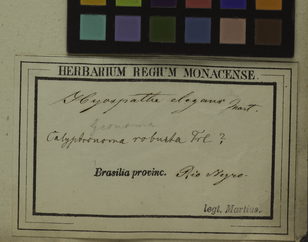 HERBARIUM REGIUM MONACENSE.
Hyospathe elegans Mart.
Geonoma
Calyptronoma robusta Trl. ?
Brasilia provinc. Rio Negro
legt. Martius.